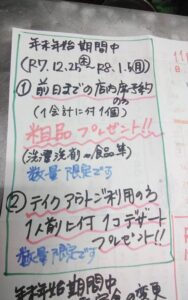 年末年始期間中
(R7.12.25㊍〜R8.1.5㊊)
① 前日までの店内席予約のみ
(1会計に付1個)
粗品プレゼント!!
(洗濯洗剤or食品等)
数量限定です
② テイクアウトご利用のみ
1人前に付1コデザート
プレゼント!!
数量限定です
年末年始期間中
の変更